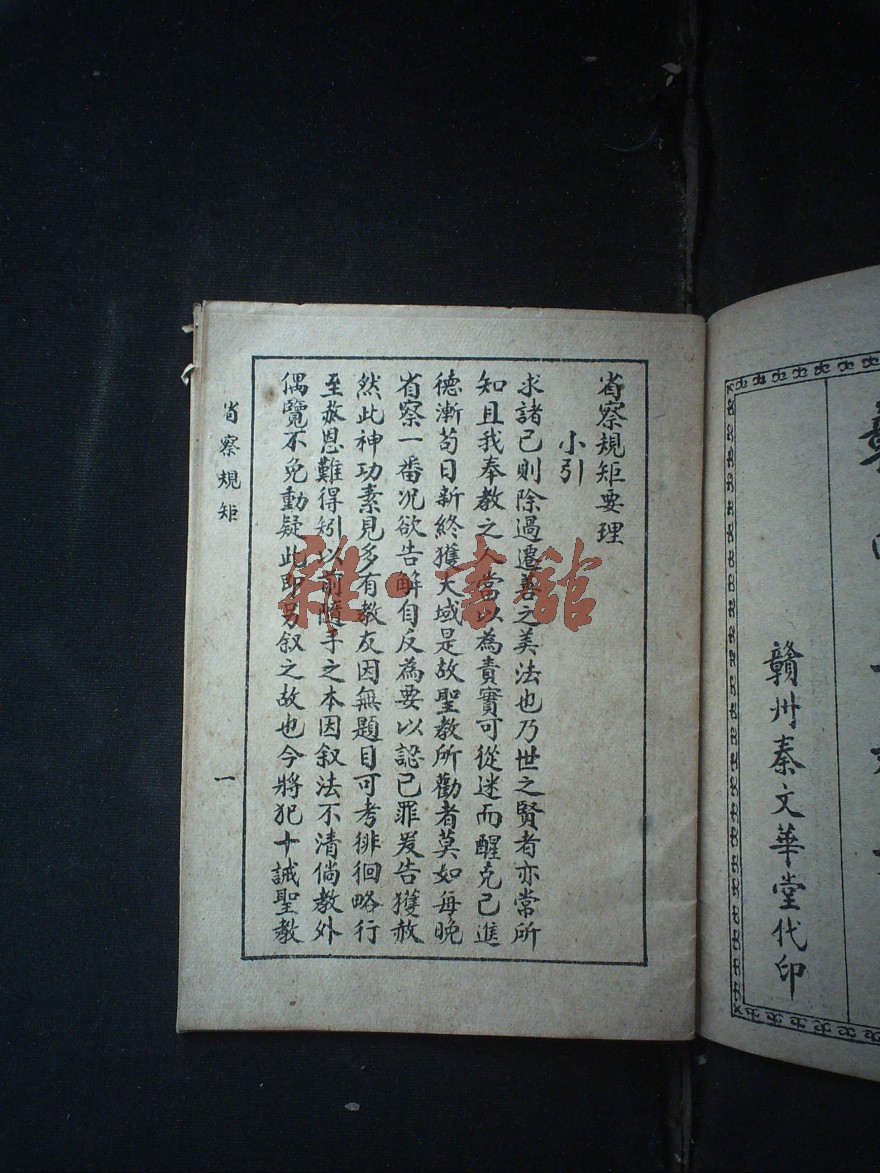 贛州秦文華堂代印
省察規矩要理
小引
求諸己則除過遷善之美法也乃世之賢者亦常所
知且我奉教之人當以為責實可從迷而醒克己進
德漸茍日新終獲天域是故聖教所勸者莫如每晚
省察一番况欲告解自反為要以認己罪爰告獲赦
然此神功素見多有教友因無題目可考徘徊略行
至赦恩難得矧以前憶手之本因叙法不清倘教外
偶覽不免動疑此即另叙之故也今將犯十誡聖教
省察規矩
一
雜·書館